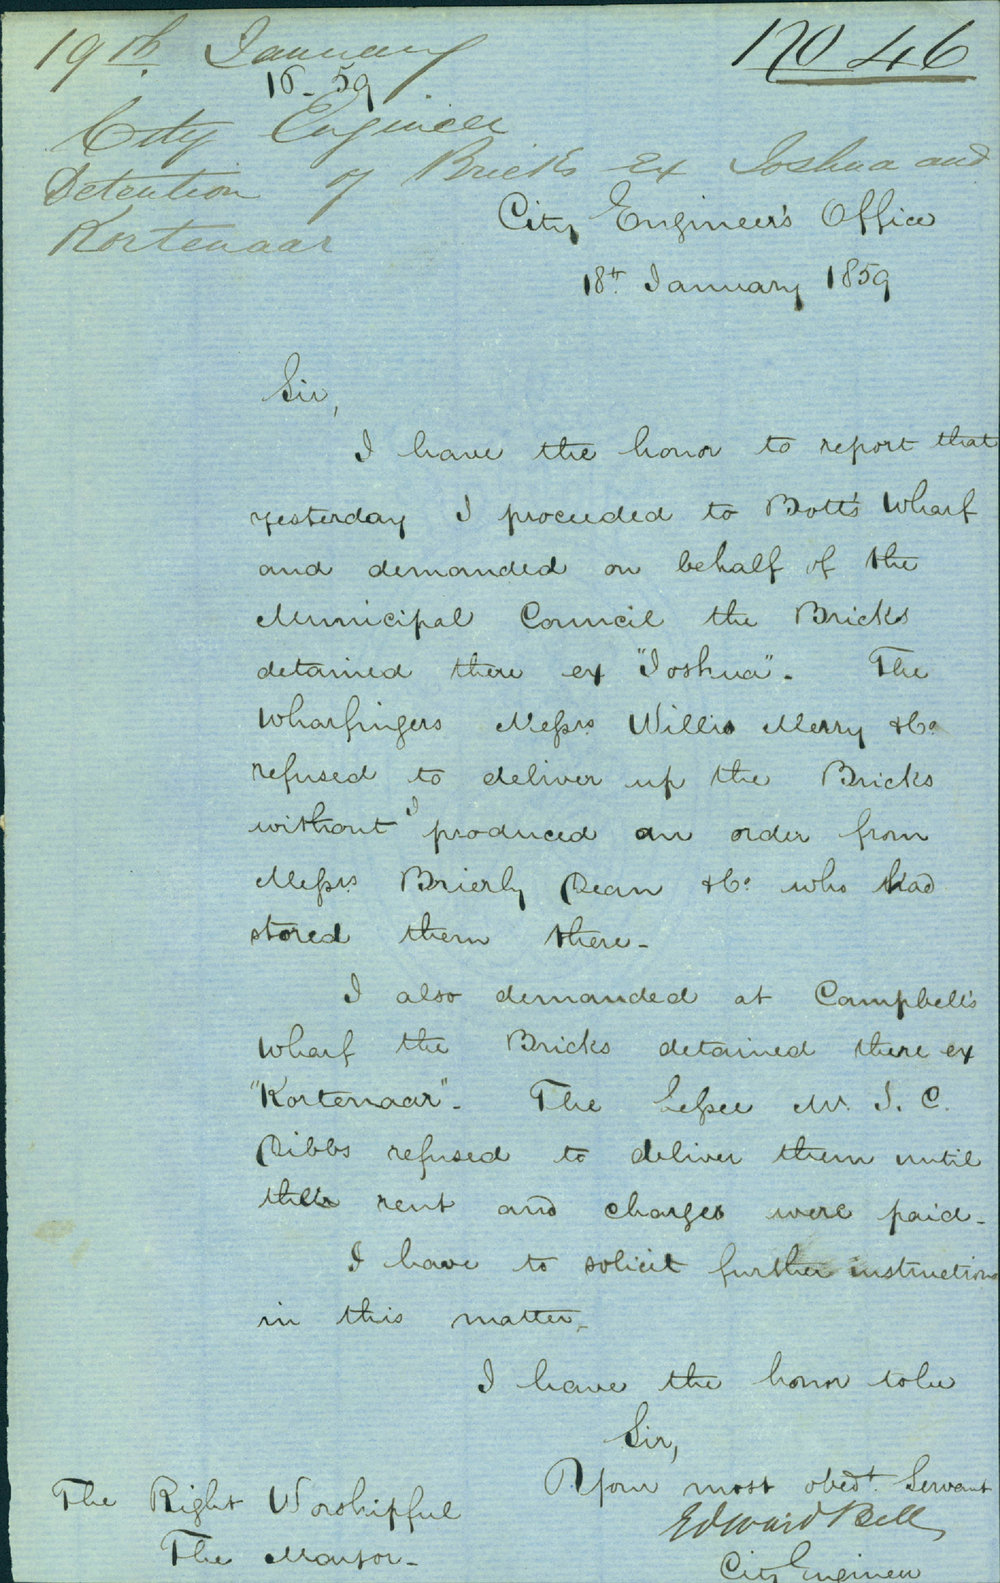 19th January
No 46
16-59
City Engineer
Detention of Bricks ex Joshua and
Kortenaar
City Engineer's Office
18th January 1859
Sir,
I have the honor to report that
yesterday I proceeded to Bott's Wharf
and demanded on behalf of the
Municipal Council the Bricks
detained there ex "Joshua". The
Wharfingers Messrs Willis Merry &Co
refused to deliver up the Bricks
without I produced an order from
Messrs Brierly Dean &Co who had
stored them there-
I also demanded at Campbell's
Wharf the Bricks detained there ex
"Kortenaar". The Lessee Mr. J. C.
Dibbs refused to deliver them until
the rent and charges were paid-
I have to solicit further instructions
in this matter-
I have the honor to be
Sir,
Your most obedt. Servant
Edward Bell
City Engineer
The Right Worshipful
The Mayor-